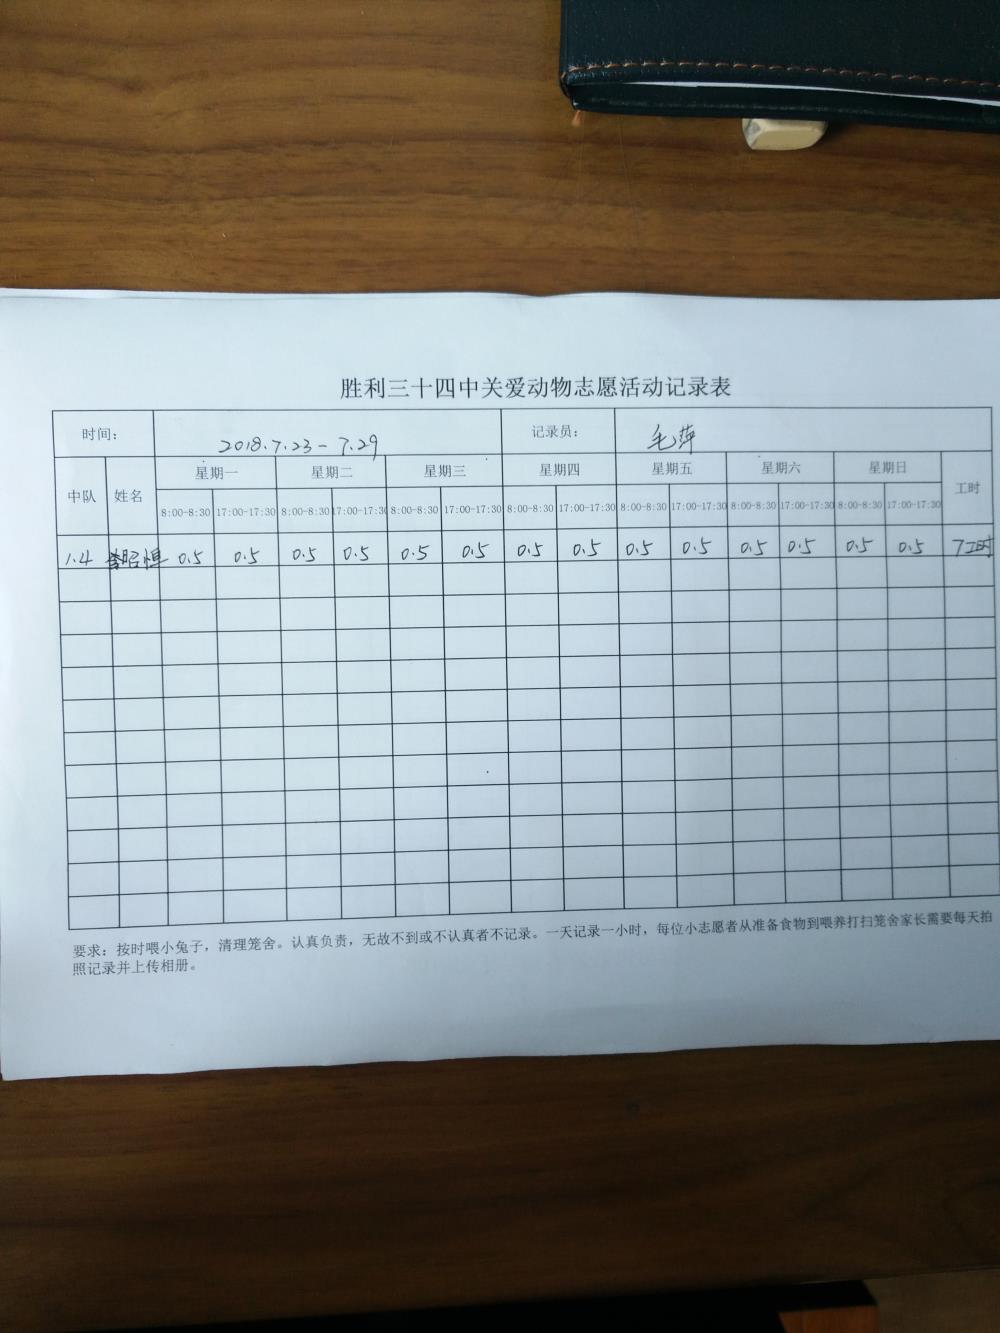 胜利三十四中关爱动物志愿活动记录表
时间： 2018.7.23－7.29 记录员： 毛萍
中队 姓名 星期一 星期二 星期三 星期四 星期五 星期六 星期日 工时
8:00-8:30 17:00-17:30 8:00-8:30 17:00-17:30 8:00-8:30 17:00-17:30 8:00-8:30 17:00-17:30 8:00-8:30 17:00-17:30 8:00-8:30 17:00-17:30 8:00-8:30 17:00-17:30
1.4 李昭恒 0.5 0.5 0.5 0.5 0.5 0.5 0.5 0.5 0.5 0.5 0.5 0.5 0.5 0.5 7工时
要求：按时喂小兔子，清理笼舍。认真负责，无故不到或不认真者不记录。一天记录一小时，每位小志愿者从准备食物到喂养打扫笼舍家长需要每天拍
照记录并上传相册。